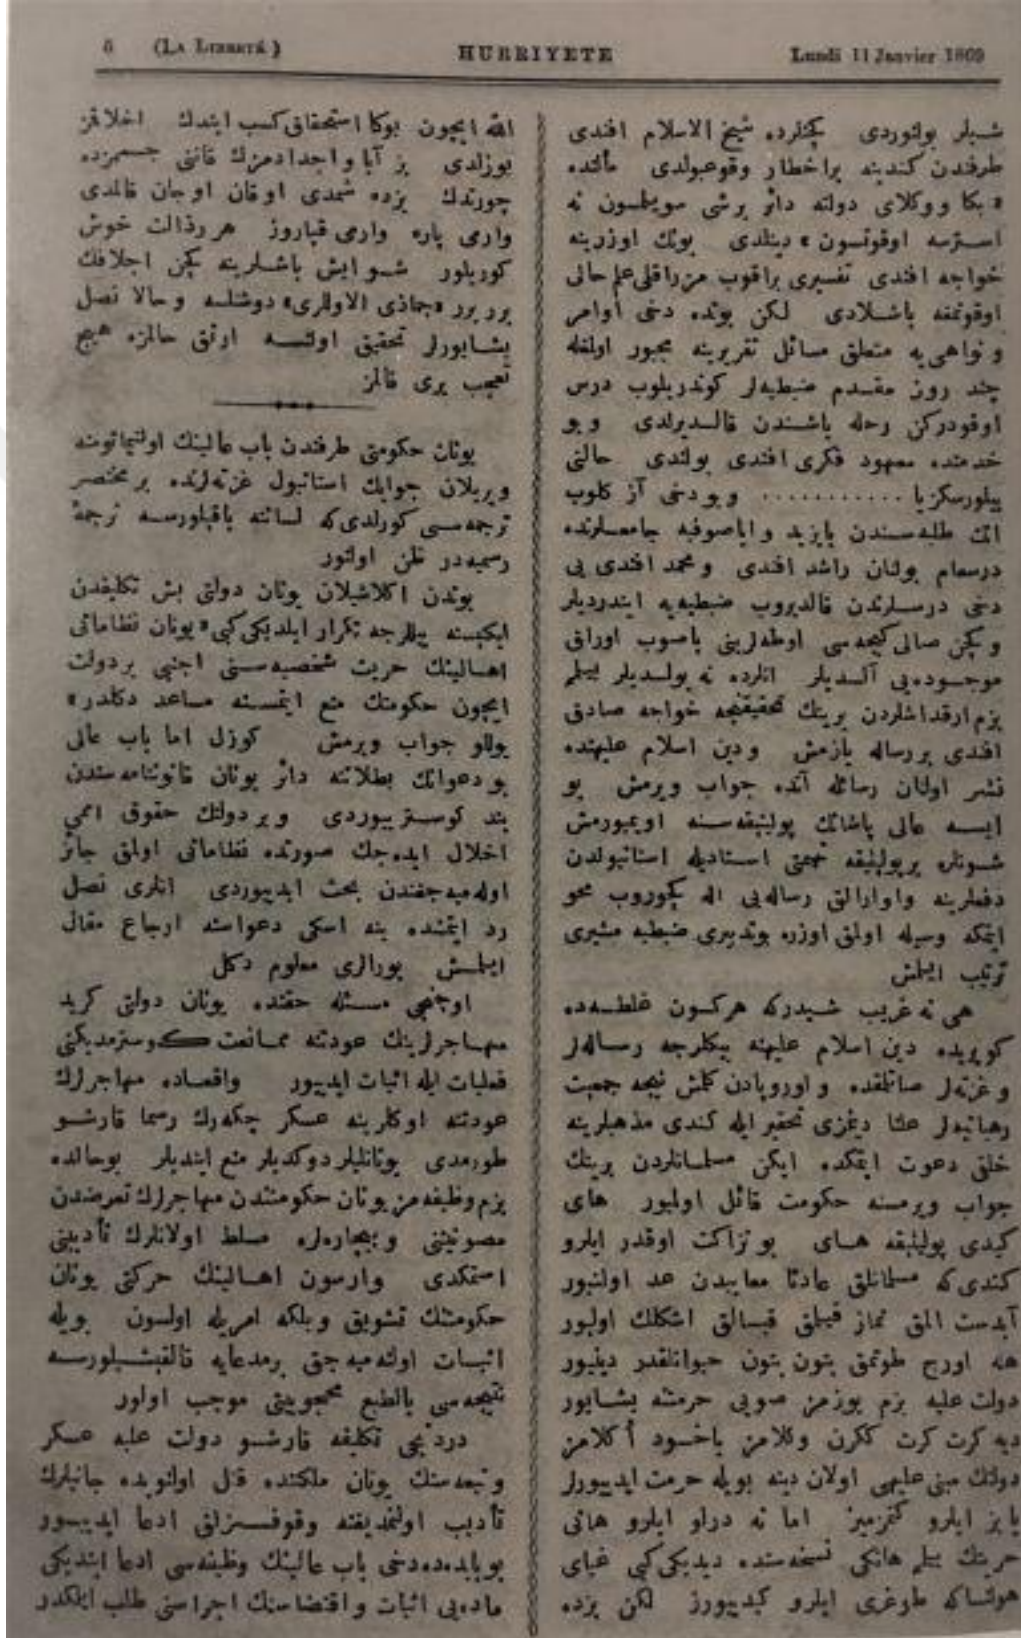 6 (LA LIBERTÉ) HURRIYETE Lundi 11 Janvier 1869
شیلر بولنوردی کچنلرده شیخ الاسلام افندی
طرفندن کندینه براخطار وقوعبولدی مآلنده
« بکا ووکلای دولته دائر برشی سویلمسون نه
استرسه اوقوتسون » دینلدی بونك اوزرینه
خواجه افندی تفسیری براقوب مزراقلی علم حالی
اوقوتمغه باشلادی لکن بونده دخی اوامر
و نواهی یه متعلق مسائل تقریرینه مجبور اولمغله
چند روز مقدم ضبطیه لر کوندریلوب درس
اوقودرکن رحله باشندن قالدیرلدی وبو
خدمتده معهود فکری افندی بولندی حالنی
بیلورسکزیا ........... وبودخی آز کلوب
انك طلبه سندن بایزید وایاصوفیه جامعلرنده
درسعام بولنان راشد افندی ومحمد افندی یی
دخی درسلرندن قالدیروب ضبطیه یه ایندردیلر
وکچن صالی کیجه سی اوطه لرینی باصوب اوراق
موجوده یی آلدیلر انلرده نه بولدیلر بیلم
بزم ارقداشلردن برینك تحقیقنجه خواجه صادق
افندی بررساله یازمش ودین اسلام علیهنده
نشر اولنان رسائله آنده جواب ویرمش بو
ایسه عالی پاشانك پولیتیقه سنه اویمیورمش
شونلره برپولیتیقه جمعتی اسنادیله استانبولدن
دفعلرینه واوارالق رساله یی اله کچوروب محو
ایتمکه وسیله اولمق اوزره بوتدبیری ضبطیه مشیری
ترتیب ایلمش
هی نه غریب شیدرکه هرکون غلطه ده
کوپریده دین اسلام علیهنه بیکلرجه رساله لر
وغزته لر صاتلمقده و اوروپادن کلمش نیجه جمعیت
رهبانیه لر علنا دیننزی تحقیر ایله کندی مذهبلرینه
خلقی دعوت ایتمکده ایکن مسلمانلردن برینك
جواب ویرمسنه حکومت قائل اولمیور های
کیدی پولیتیقه های بو نزاکت اوقدر ایلرو
کندی که مسلمانلق عادتا معایبدن عد اولنیور
آبدست المق نماز قیلمق قبالق اشکلك اولیور
هله اورج طوتمق بتون بتون حیوانلقدر دینیور
دولت علیه بزم یوزمز صویی حرمتنه یشایور
دیه کرت کرت ککرن وکلامز یاخود أکلامز
دولتك مبنی علیهی اولان دینه بویله حرمت ایدییورلر
یابز ایلرو کتمزمیز اما نه درلو ایلرو هانی
حریتك بیلم هانکی نسخه سنده دیدیکی کبی غیای
هولناکه طوغری ایلرو کیدییورز لکن بزده
الله ایچون بوکا استحقاق کسب ایتدك اخلاقمز
بوزلدی بز آبا واجدادمزك قاننی جسممزده
چورتدك بزده شمدی اوقان اوجان قالمدی
وارمی پاره وارمی قیاروز هررذالت خوش
کوریلور شو ایش باشلرینه کچن اجلافك
برر برر «جماذی الاوللری» دوشلسه وحالا نصل
یشایورلر تحقیق اولنسه ارتق حالمزه هیچ
تعجب یری قالمز
یونان حکومتی طرفندن باب عالینك اولتیماتومنه
ویریلان جوابك استانبول غزته لرنده بر مختصر
ترجمه سی کورلدی که لسانته باقیلورسه ترجمۀ
رسمیه در ظن اولنور
بوندن اکلاشیلان یونان دولتی بش تکلیفدن
ایکیسنه ییللرجه تکرار ایلدیکی کبی «یونان نظاماتی
اهالینك حریت شخصیه سنی اجنبی بردولت
ایچون حکومتك منع ایتمسنه مساعد دکلدر»
یوللو جواب ویرمش کوزل اما باب عالی
بودعوانك بطلاننه دائر یونان قانوننامه سندن
بند کوستریوردی وبر دولتك حقوق اممی
اخلال ایده جك صورتده نظاماتی اولمق جائز
اوله میه جغندن بحث ایدییوردی انلری نصل
رد ایتمشده ینه اسکی دعواسنه ارجاع مقال
ایلمش بورالری معلوم دکل
اوچنجی مسئله حقنده یونان دولتی کرید
مهاجرلرینك عودتنه ممانعت کوسترمدیکنی
فعلیات ایله اثبات ایدییور واقعاده مهاجرلرك
عودتنه اوکلرینه عسکر چکه رك رسما قارشو
طورمدی یونانلیلر دوکدیلر منع ایتدیلر بوحالده
بزم وظیفه مز یونان حکومتندن مهاجرلرك تعرضدن
مصونیتنی وبیچاره لره مسلط اولانلرك تأدیبنی
استمکدی وارسون اهالینك حرکتی یونان
حکومتنك تشویق وبلکه امریله اولسون بویله
اثبات اولنه میه جق برمدعایه قالقیشیلورسه
نتیجه سی بالطبع محجوبیتی موجب اولور
دردنجی تکلیفه قارشو دولت علیه عسکر
وتبعه سنك یونان ملکنده قتل اولنوبده جانیلرك
تأدیب اولنمدیغنه وقوفسزلق ادعا ایدییور
بوبابده ده دخی باب عالینك وظیفه سی ادعا ایتدیکی
ماده یی اثبات واقتضاسنك اجراسنی طلب ایتمکدر